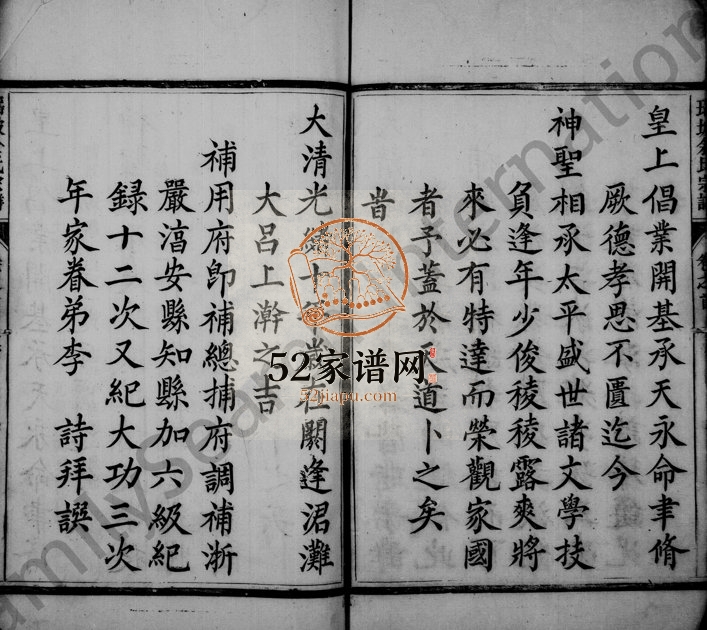 皇上倡業開基承天永命聿脩
厥德孝思不匱迄今
神聖相承太平盛世諸文學技
負逢年少俊稜稜露爽將
來必有特達而榮觀家國
者予蓋於天道卜之矣
旹
大清光緒十年歲在閼逢涒灘
大呂上澣之吉
補用府卽補總捕府調補浙
嚴淯安縣知縣加六級紀
録十二次又紀大功三次
年家眷弟李 詩拜譔
52家谱网
52jiapu.com
FamilySearch International